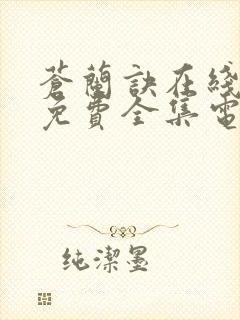 蒼蘭訣在綫
免費全集電
纯潔墨